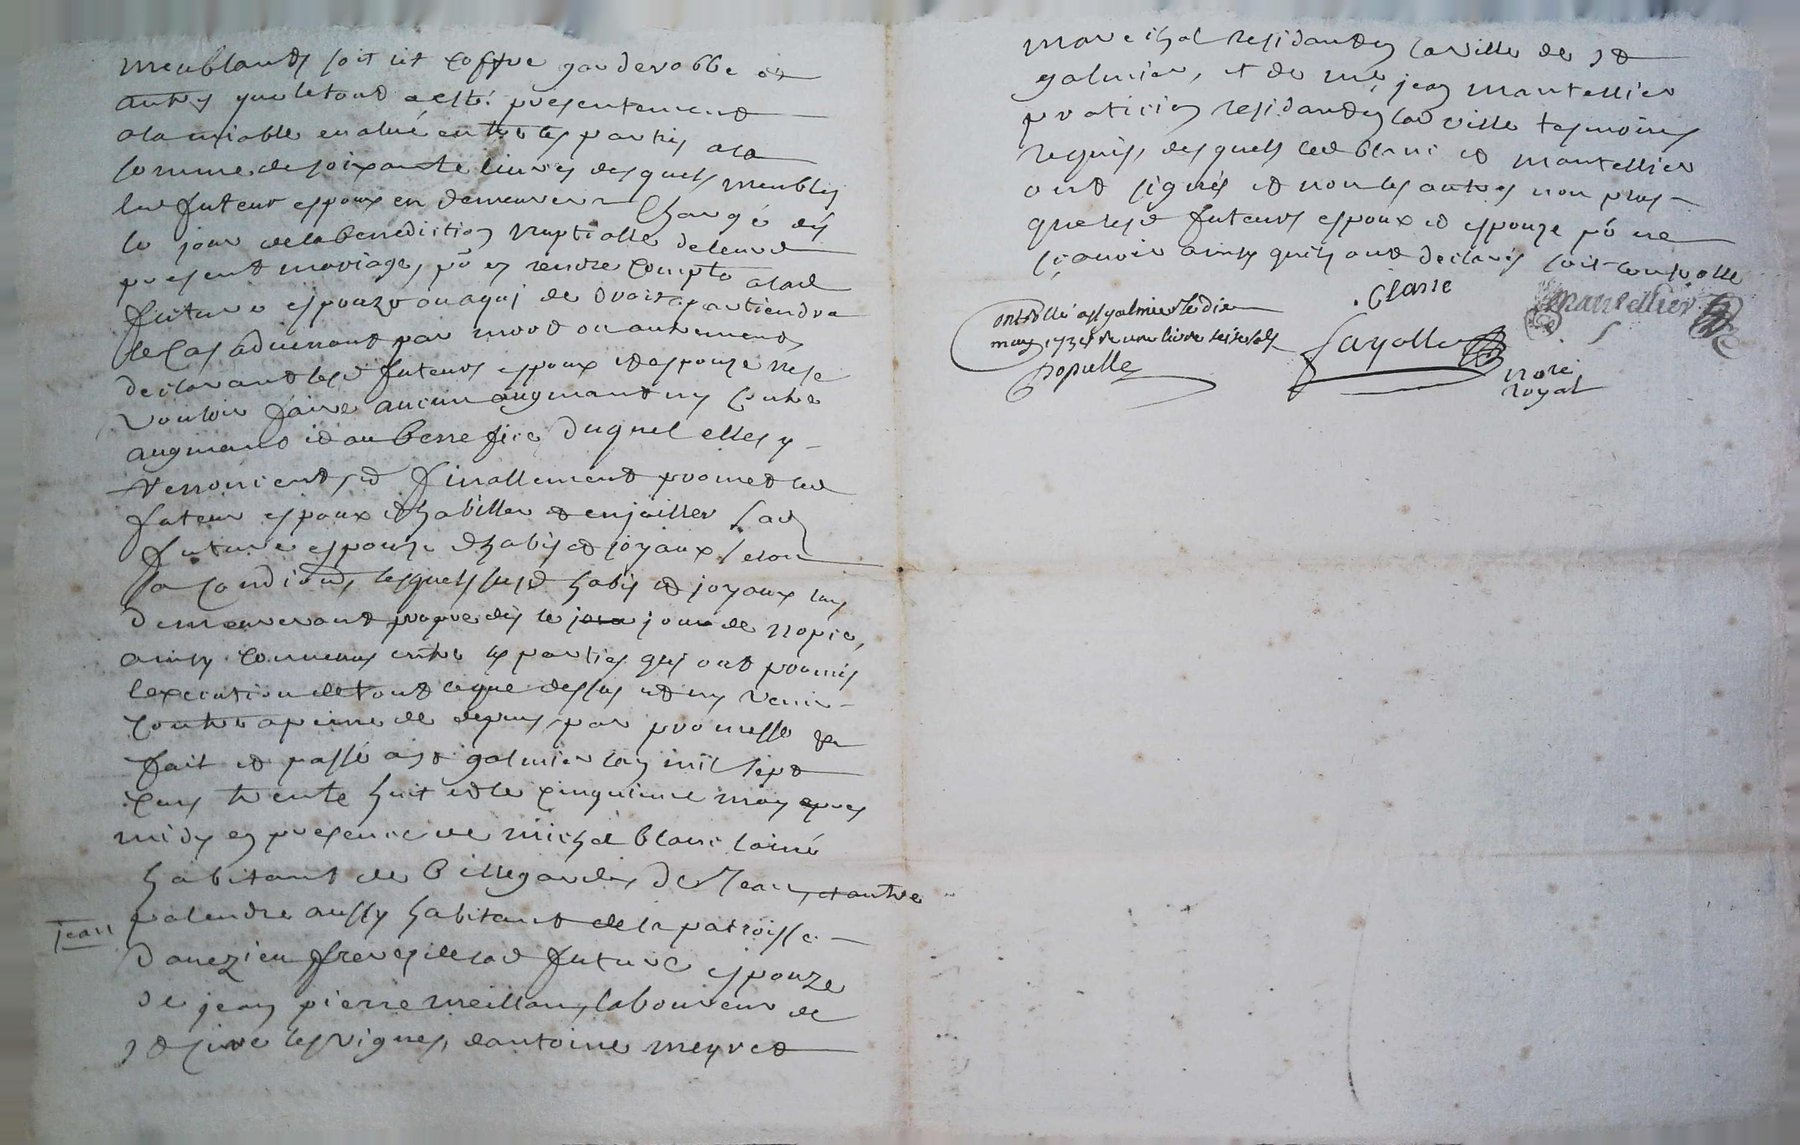 meublants soit lit coffre garderobbe et
autres que le tout a esté presentement
a lamiable evalué entre les parties a la
somme de soixante livres desquels meubles
led futeur espoux en demeurera chargé dés
le jour de la benediction nuptialle de leurd
present mariage, po en rendre compte a lad
future espouze ou a qui de droit apartiendra
le cas advenant par mort ou autrement
declarant lesd futeurs espoux et espouze ne se
vouloir faire aucun augment ny contre
augment et au benefice duquel elles y
renoncent, et finallement promet led
futeur espoux dhabiller et enjoailler lad
future espouze dhabis et joyaux selon
sa condition, lesquels susd habis et joyaux luy
demeureront propre dés le jour de nopce,
ainsy convenus entre les parties qui ont promis
lexecution de tout ce que dessus et ny venir
contre a peine de depens, par promesse &
fait et passé a st galmier lan mil sept
cens trente huit et le cinquieme may apres
midy en presence de michel blanc lainé
habitant de Billegarde, de Jean, et autre
Jean
palendre aussy habitant de la parroisse
daveizieu freres de lad future espouze
de jean pierre meillan, laboureur de
st cire les vignes, dantoine meyret
marechal residant en la ville de st
galmier, et de me jean mantellier
praticien residant en lad ville tesmoins
requis, desquels led blanc et mantellier
ont signés et non les autres non plus
que lesd futeurs espoux et espouze po ne
sçavoir ainsy quils ont declarés soit controllé
. Blanc
Mantellier
Controllé a st galmier le dix
may 1738 r une livre seise sols
Populle
Fayolle
nore
royal